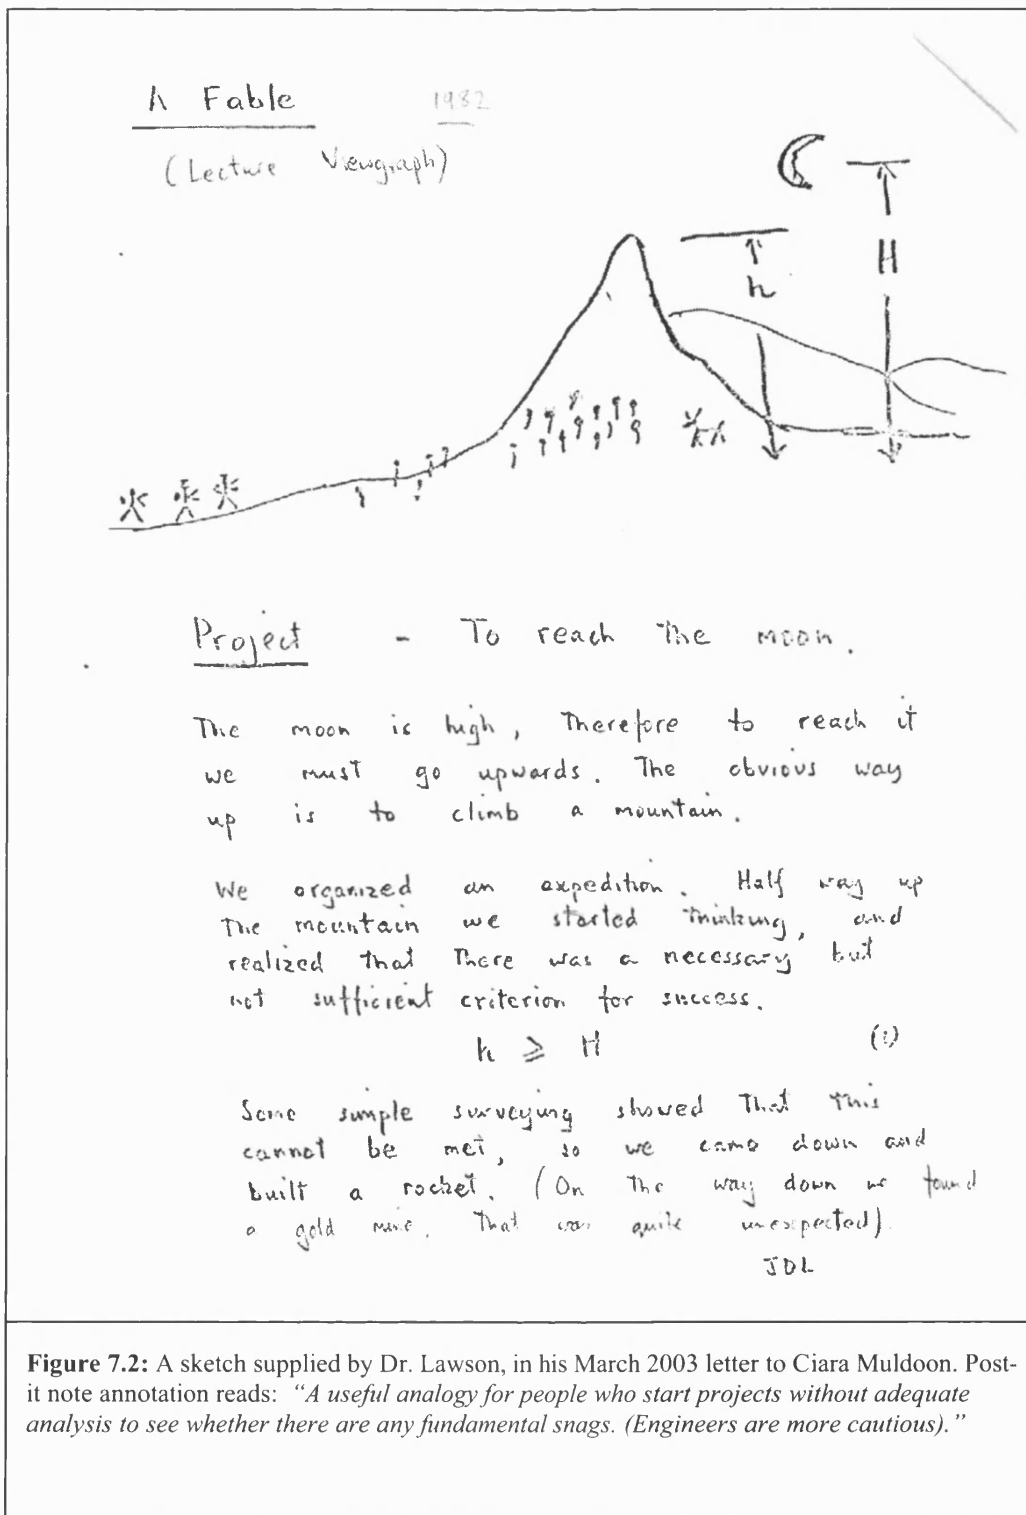 A Fable 1982
(Lecture Viewgraph)
h
H
Project - To reach the moon.
The moon is high, Therefore to reach it
we must go upwards. The obvious way
up is to climb a mountain.
We organized an expedition. Half way up
The mountain we started thinking, and
realized that There was a necessary but
not sufficient criterion for success.
h ⩾ H (1)
Some simple surveying showed That this
cannot be met, so we came down and
built a rocket. (On the way down we found
a gold mine. That was quite unexpected).
JDL
Figure 7.2: A sketch supplied by Dr. Lawson, in his March 2003 letter to Ciara Muldoon. Post-
it note annotation reads: "A useful analogy for people who start projects without adequate
analysis to see whether there are any fundamental snags. (Engineers are more cautious)."